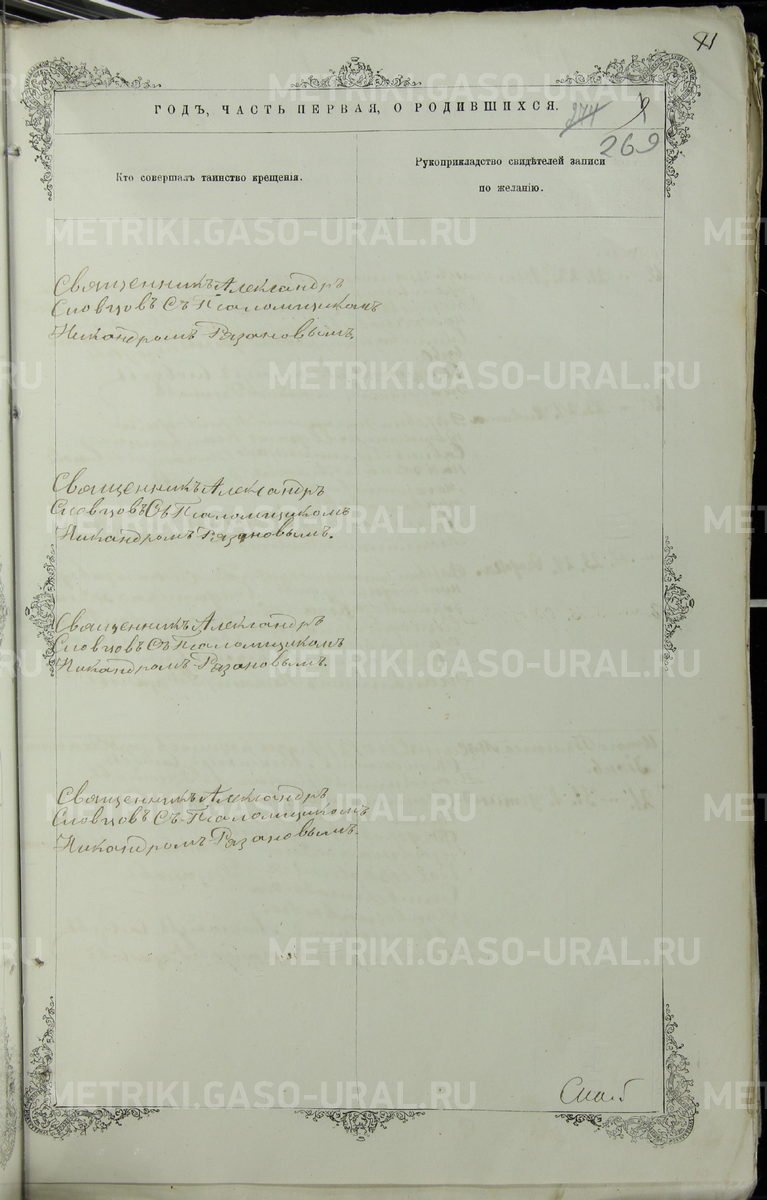 41
ГОДЪ, ЧАСТЬ ПЕРВАЯ, О РОДИВШИХСЯ.
274
269
Кто совершалъ таинство крещенія.
Рукоприкладство свидѣтелей записи
по желанію.
Священникъ Александръ
Словцовъ съ Псаломщикомъ
Никандромъ Рязановымъ.
Священникъ Александръ
Словцовъ Съ Псаломщикомъ
Никандромъ Рязановымъ.
Священникъ Александръ
Словцовъ Съ Псаломщикомъ
Никандромъ Рязановымъ.
Священникъ Александръ
Словцовъ Съ Псаломщикомъ
Никандромъ Рязановымъ.
METRIKI.GASO-URAL.RU